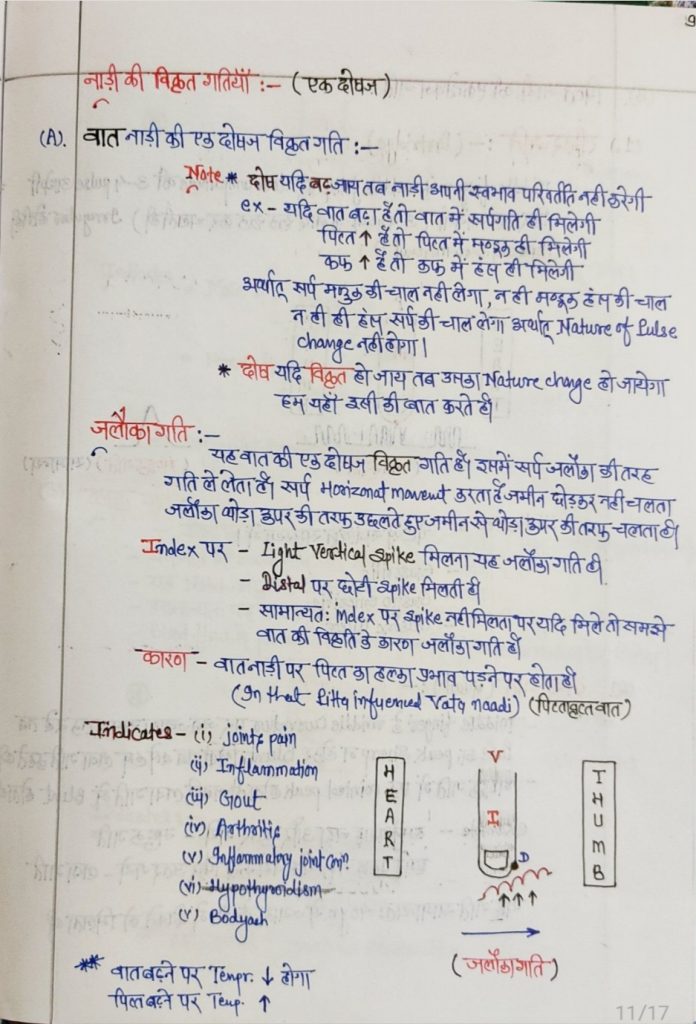 9
नाड़ी की विकृत गतियाँ :- (एक दोषज)
(A). वात नाड़ी की एक दोषज विकृत गति :-
Note * दोष यदि बढ़ जाय तब नाड़ी अपनी स्वभाव परिवर्तति नही करेगी
ex - यदि वात बढ़ा है तो वात में सर्पगति ही मिलेगी
पित्त ↑ है तो पित्त में मण्डूक ही मिलेगी
कफ ↑ है तो कफ में हंस ही मिलेगी
अर्थात् सर्प मण्डुक की चाल नही लेगा, न ही मण्डूक हंस की चाल
न ही ही हंस सर्प की चाल लेगा अर्थात् Nature of Pulse
change नही होगा।
* दोष यदि विकृत हो जाय तब उसका Nature change हो जायेगा
हम यहाँ इसी की बात करते है।
जलौका गति :-
यह वात की एक दोषज विकृत गति है। इसमें सर्प जलौका की तरह
गति ले लेता है। सर्प Horizonat movent करता है जमीन छोड़कर नही चलता
जलौका थोड़ा ऊपर की तरफ उछलते हुए जमीन से थोड़ा ऊपर की तरफ चलता है।
Index पर - Light Vertical spike मिलना यह जलौका गति है।
- Distal पर छोटी spike मिलती है।
- सामान्यत: index पर spike नही मिलता पर यदि मिले तो समझे
वात की विकृति के कारण जलौका गति है।
कारण - वात नाड़ी पर पित्त का हल्का प्रभाव पड़ने पर होता है।
(In that Pitta infuenced Vata naadi) (पित्तावृत्त वात)
Indicates - (i) joints pain
(ii) Inflammation
(iii) Gout
(iv) Arthritis
(v) Inflammatory joint con
(vi) Hypothyroidism
(v) Bodyach
HEART
V
I
D
THUMB
(जलौका गति)
** वात बढ़ने पर Tempr. ↓ होगा
पित्त बढ़ने पर Temp. ↑
11/17